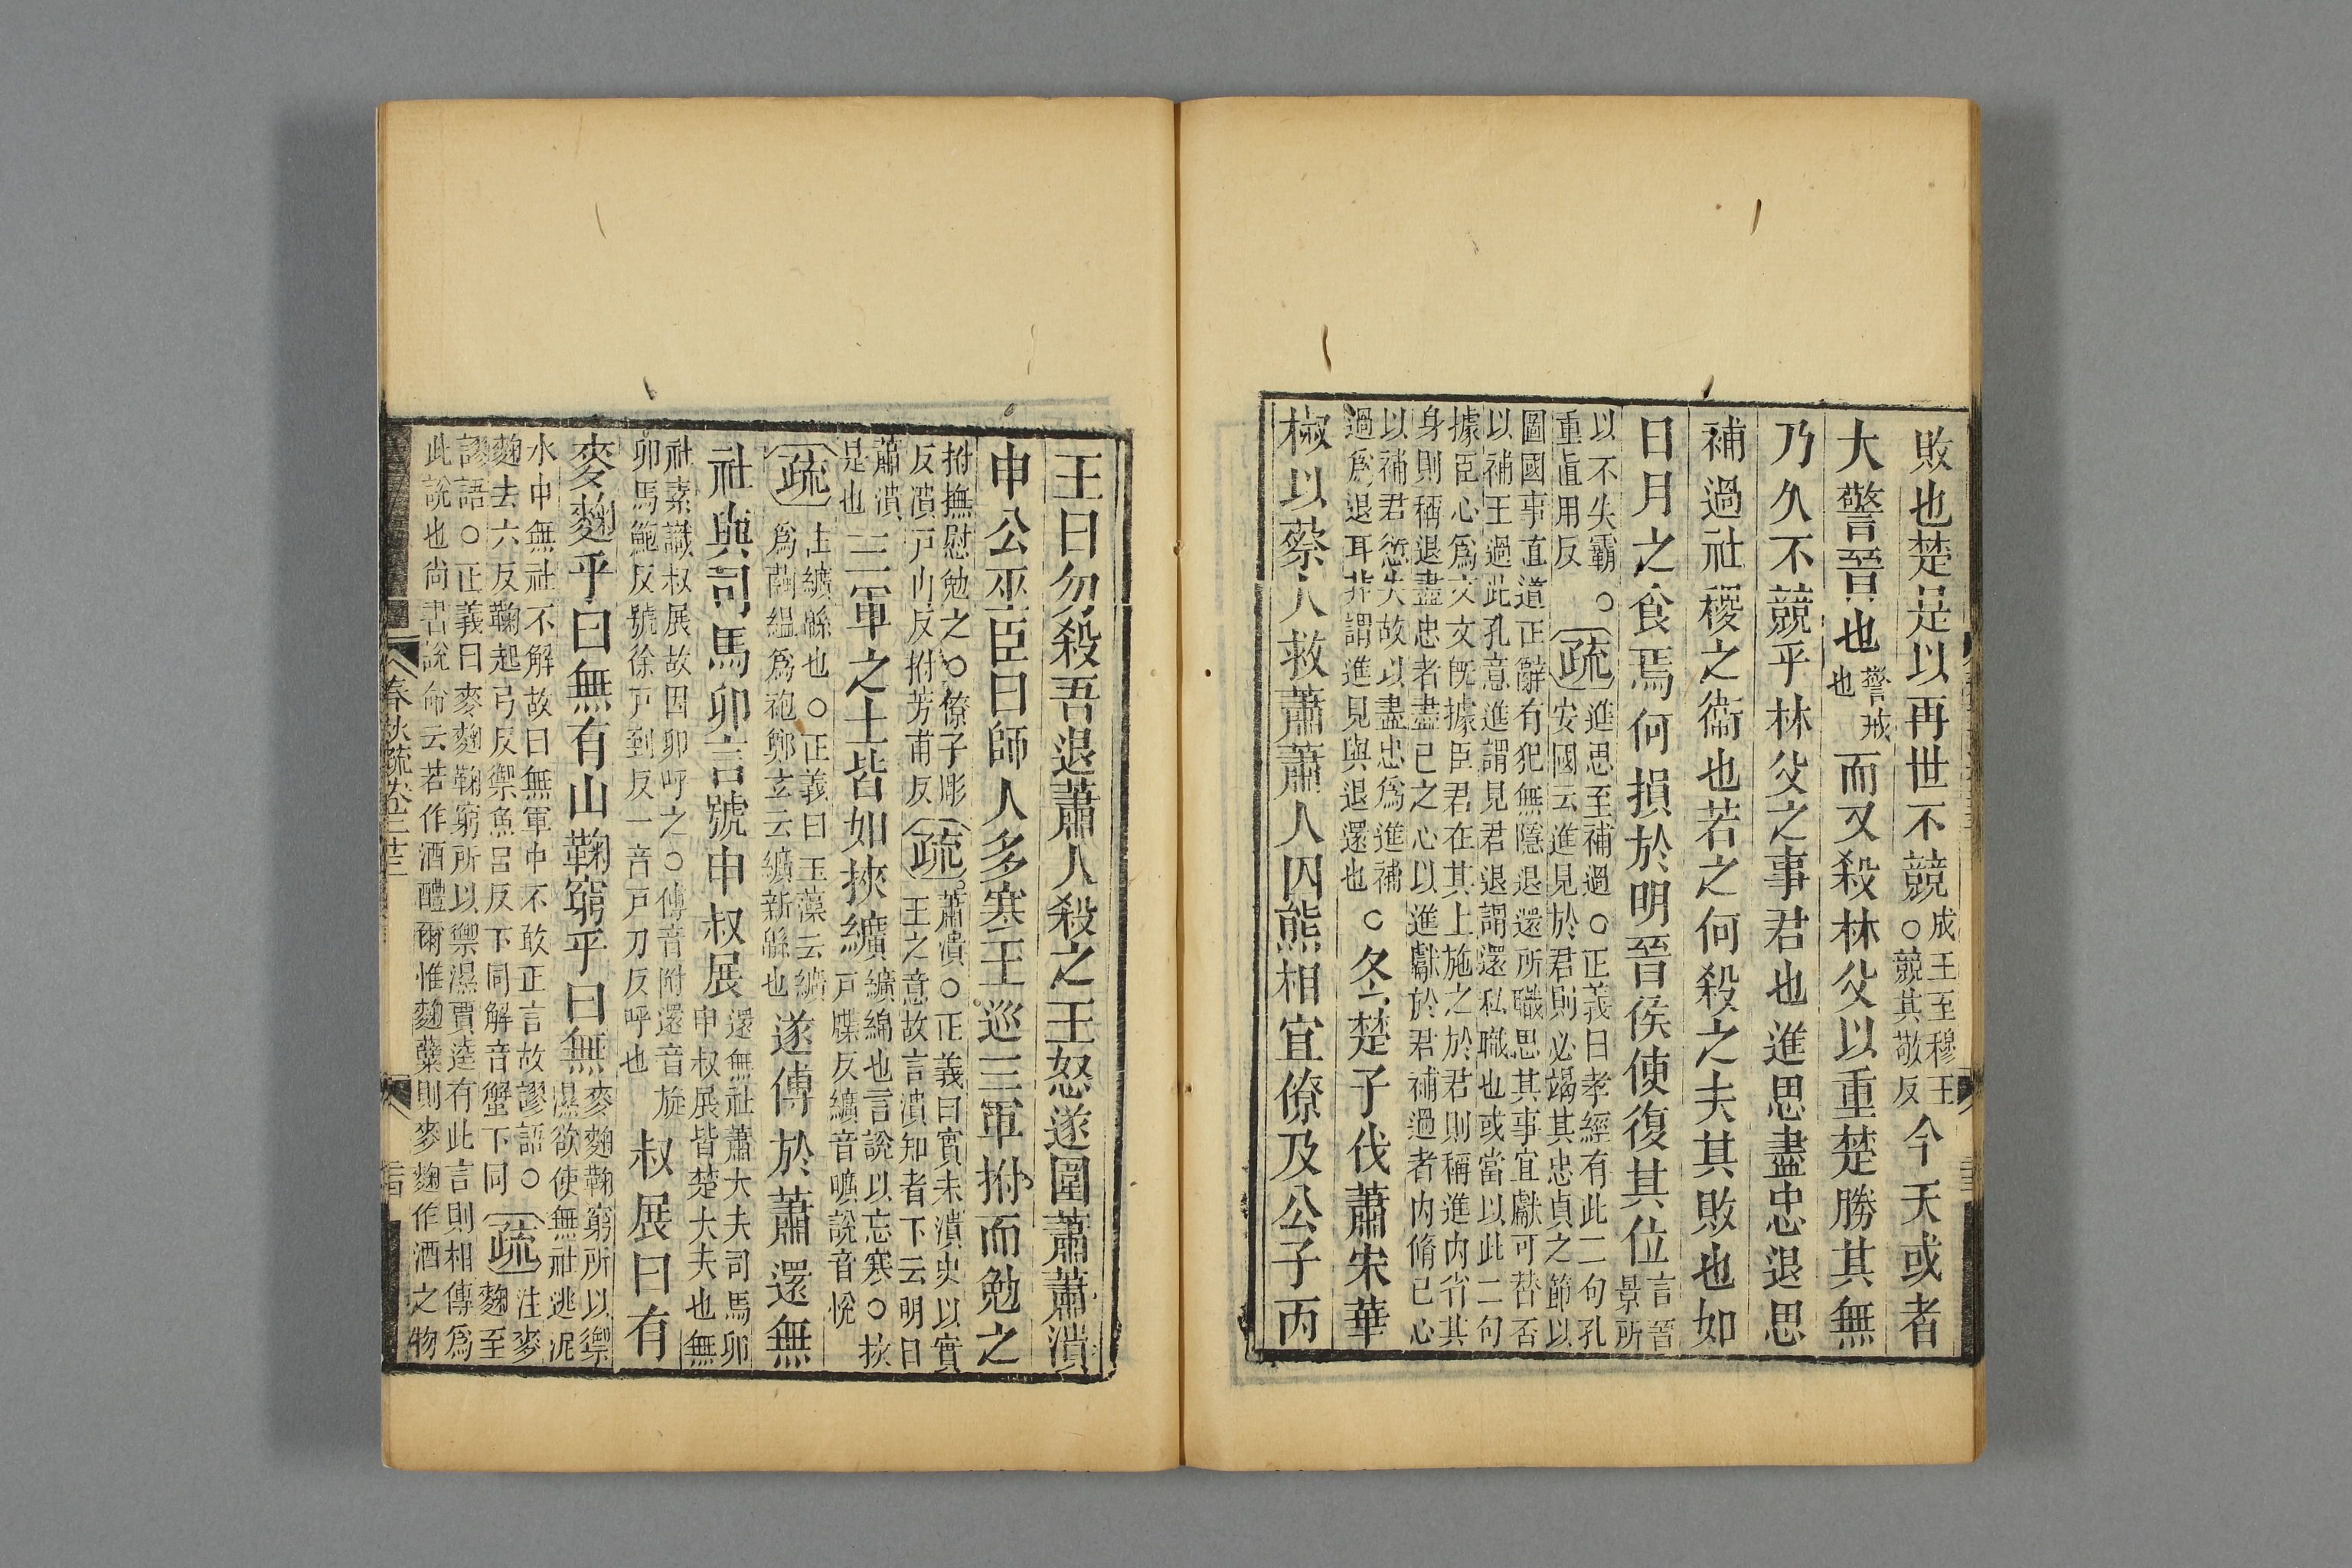 敗也楚是以再世不競成王至穆王
○競其敬反今天或者
大警晉也警戒
也而又殺林父以重楚勝其無
乃久不競乎林父之事君也進思盡忠退思
補過社稷之衞也若之何殺之夫其敗也如
日月之食焉何損於明晉侯使復其位言晉
景所
以不失霸○
重直用反
疏進思至補過○正義曰孝經有此二句孔
安國云進見於君則必竭其忠貞之節以
圖國事直道正辭有犯無隱退還所職思其事宜獻可替否
以補王過此孔意進謂見君退謂還私職也或當以此二句
據臣心爲文文既據臣君在其上施之於君則稱進内省其
身則稱退盡忠者盡已之心以進獻於君補過者内脩已心
以補君愆失故以盡忠爲進補
過爲退耳非謂進見與退還也
○冬楚子伐蕭宋華
椒以蔡人救蕭蕭人囚熊相宜僚及公子丙
王曰勿殺吾退蕭人殺之王怒遂圍蕭蕭潰
申公巫臣曰師人多寒王巡三軍拊而勉之
拊撫慰勉之○僚子彫
反潰戸内反拊芳甫反
疏蕭潰○正義曰實未潰史以實
王之意故言潰知者下云明日
蕭潰
是也三軍之士皆如挾纊纊綿也言說以忘寒○挾
戸牒反纊音曠說音悅
疏注纊緜也○正義曰玉藻云纊
爲繭緼爲袍鄭玄云纊新緜也
遂傅於蕭還無
社與司馬卯言號申叔展還無社蕭大夫司馬卯
申叔展皆楚大夫也無
社素識叔展故因卯呼之○傅音附還音旋
卯馬鮑反號徐戸到反一音戸刀反呼也
叔展曰有
麥麴乎曰無有山鞠窮乎曰無麥麴鞠窮所以禦
濕欲使無社逃泥
水中無社不解故曰無軍中不敢正言故謬語○
麴去六反鞠起弓反禦魚呂反下同解音蟹下同
疏注麥
麴至
謬語○正義曰麥麴鞠窮所以禦濕賈逵有此言則相傳爲
此說也尚書說命云若作酒醴爾惟麴糵則麥麴作酒之物
春秋疏卷二十三